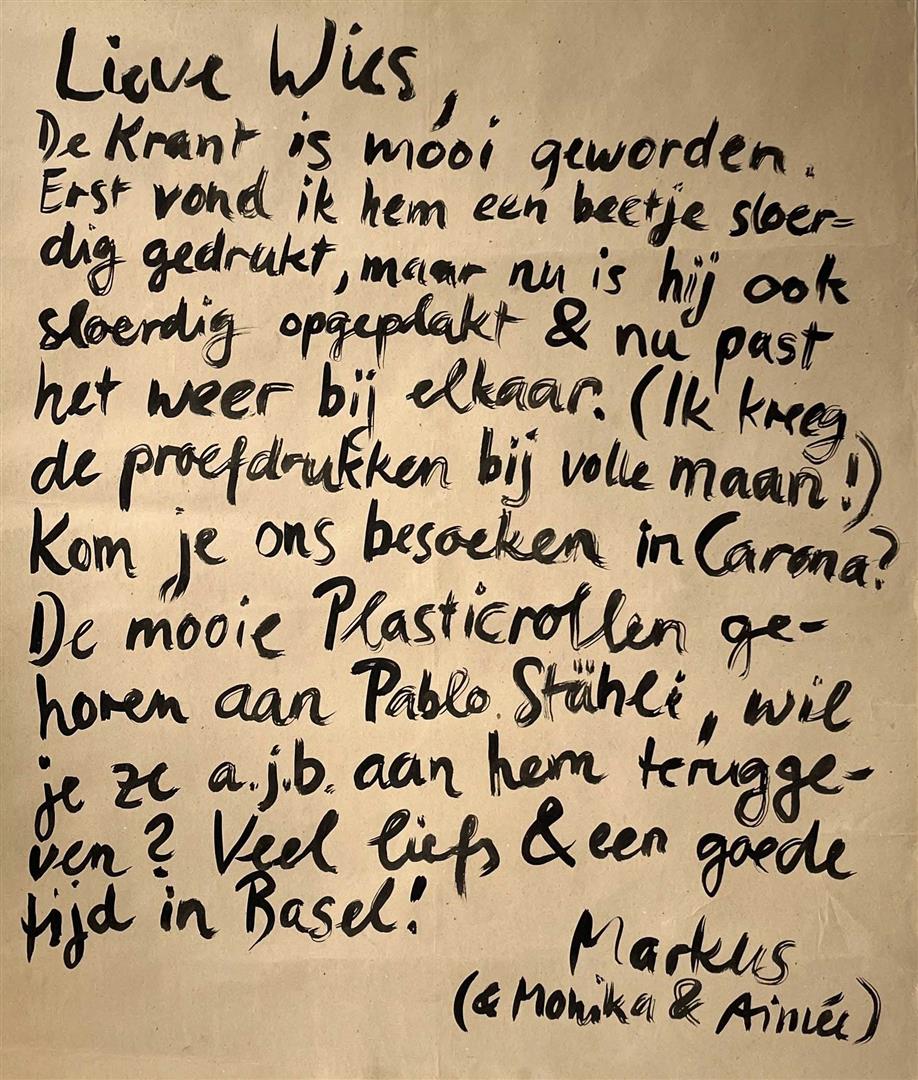 Lieve Wies,
De Krant is móoi geworden.
Erst vond ik hem een beetje sloer=
dig gedrukt, maar nu is hij ook
sloerdig opgeplakt & nu past
het weer bij elkaar. (Ik kreeg
de proefdrukken bij volle maan!)
Kom je ons besoeken in Carona?
De mooie Plasticrollen ge-
horen aan Pablo Stähli, wil
je ze a.j.b. aan hem terugge-
ven? Veel liefs & een goede
tijd in Basel!
Markus
(& Monika & Aimée)